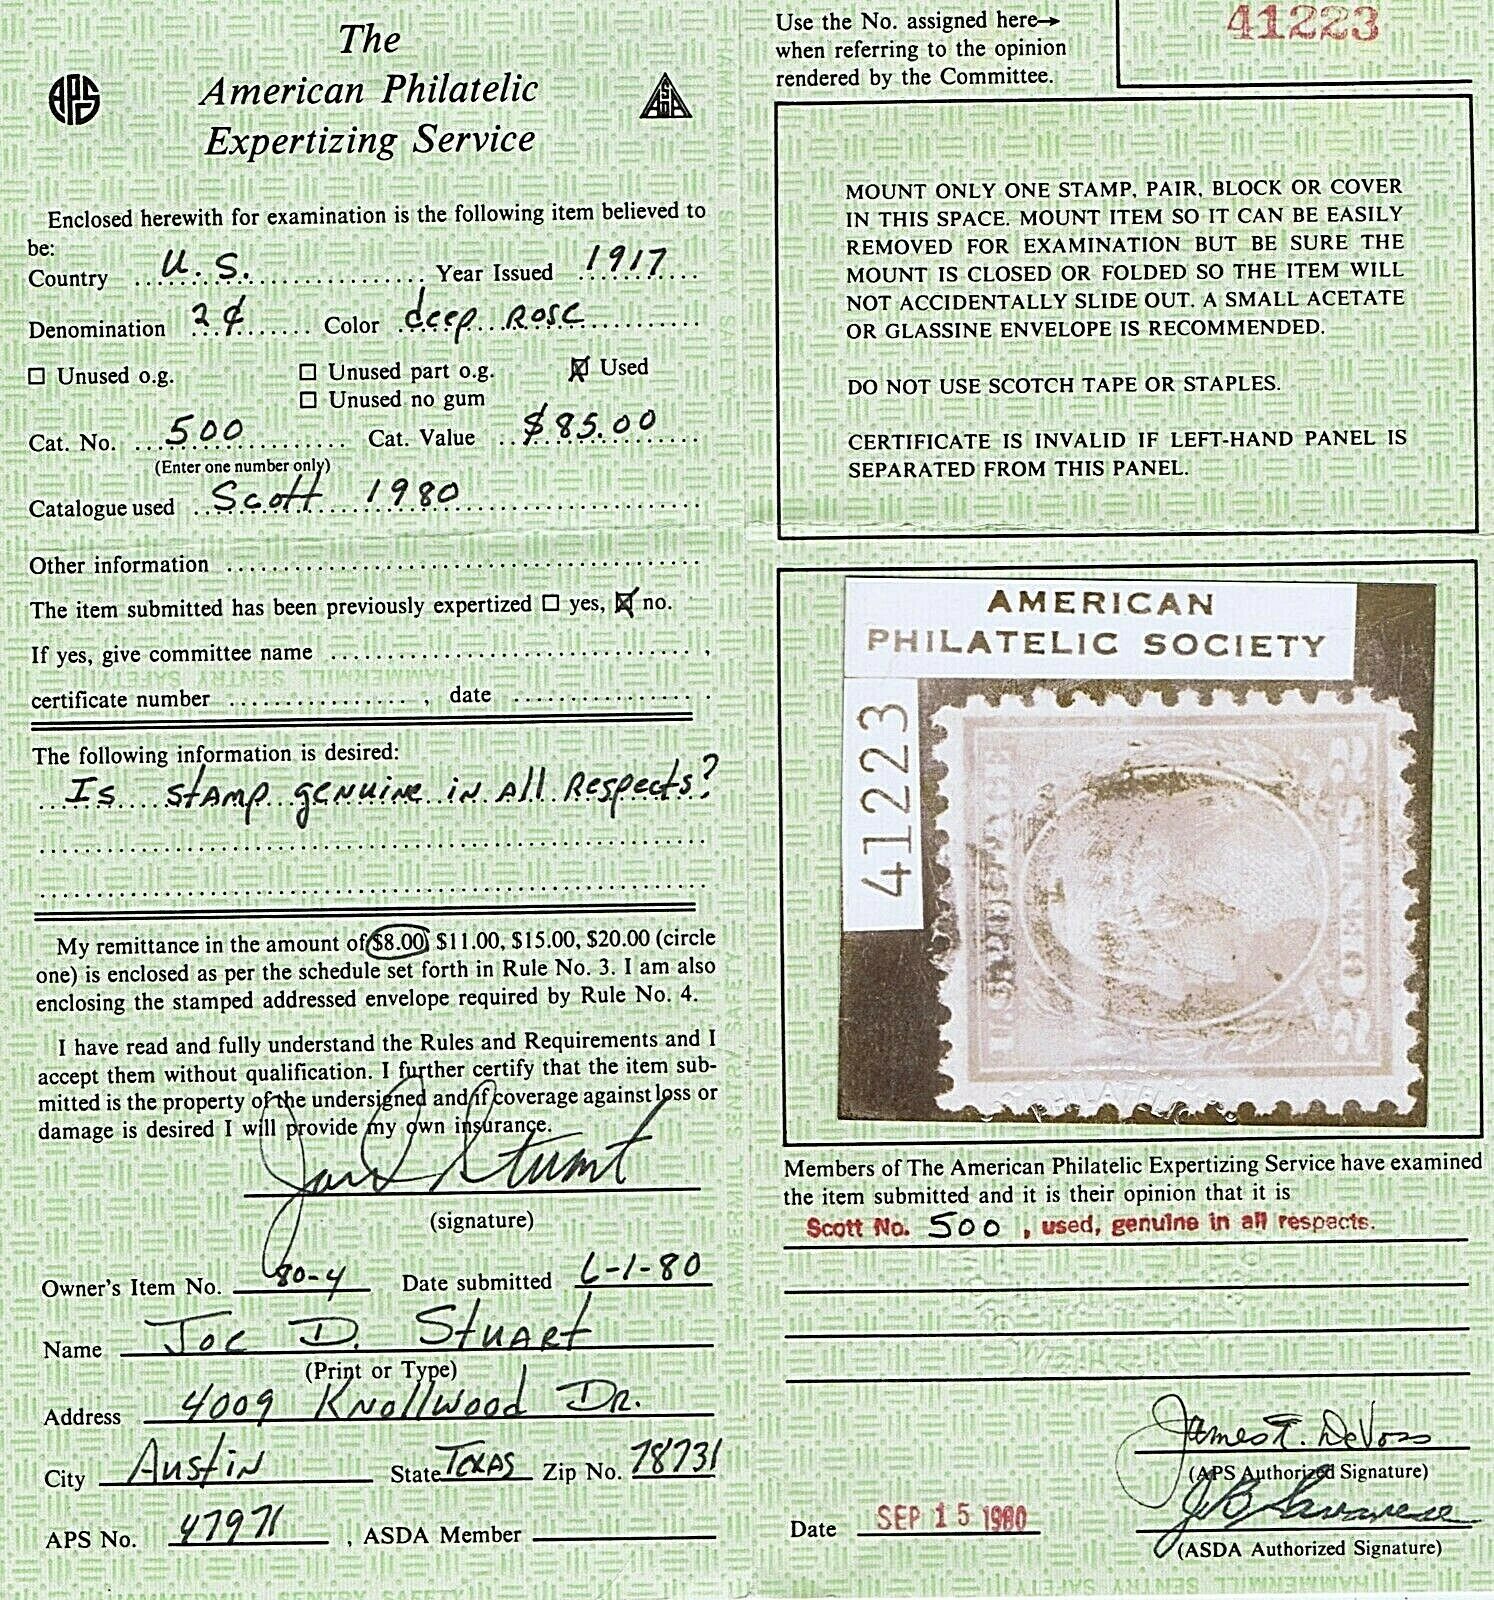 The
American Philatelic
Expertizing Service
APS
ASDA
Enclosed herewith for examination is the following item believed to
be:
Country U. S. Year Issued 1917
Denomination 2¢ Color deep Rose
☐ Unused o.g. ☐ Unused part o.g. ☒ Used
☐ Unused no gum
Cat. No. 500 Cat. Value $85.00
(Enter one number only)
Catalogue used Scott 1980
Other information
The item submitted has been previously expertized ☐ yes, ☒ no.
If yes, give committee name ,
certificate number , date .
The following information is desired:
Is stamp genuine in all Respects?
My remittance in the amount of $8.00, $11.00, $15.00, $20.00 (circle
one) is enclosed as per the schedule set forth in Rule No. 3. I am also
enclosing the stamped addressed envelope required by Rule No. 4.
I have read and fully understand the Rules and Requirements and I
accept them without qualification. I further certify that the item sub-
mitted is the property of the undersigned and if coverage against loss or
damage is desired I will provide my own insurance.
(signature)
Owner's Item No. 80-4 Date submitted 6-1-80
Name Joe D. Stuart
(Print or Type)
Address 4009 Knollwood Dr.
City Austin State Texas Zip No. 78731
APS No. 47971 , ASDA Member
Use the No. assigned here→
when referring to the opinion
rendered by the Committee.
41223
MOUNT ONLY ONE STAMP, PAIR, BLOCK OR COVER
IN THIS SPACE. MOUNT ITEM SO IT CAN BE EASILY
REMOVED FOR EXAMINATION BUT BE SURE THE
MOUNT IS CLOSED OR FOLDED SO THE ITEM WILL
NOT ACCIDENTALLY SLIDE OUT. A SMALL ACETATE
OR GLASSINE ENVELOPE IS RECOMMENDED.
DO NOT USE SCOTCH TAPE OR STAPLES.
CERTIFICATE IS INVALID IF LEFT-HAND PANEL IS
SEPARATED FROM THIS PANEL.
AMERICAN
PHILATELIC SOCIETY
41223
Members of The American Philatelic Expertizing Service have examined
the item submitted and it is their opinion that it is
Scott No. 500 , used, genuine in all respects.
James T. DeVoss
(APS Authorized Signature)
Date SEP 15 1980
(ASDA Authorized Signature)